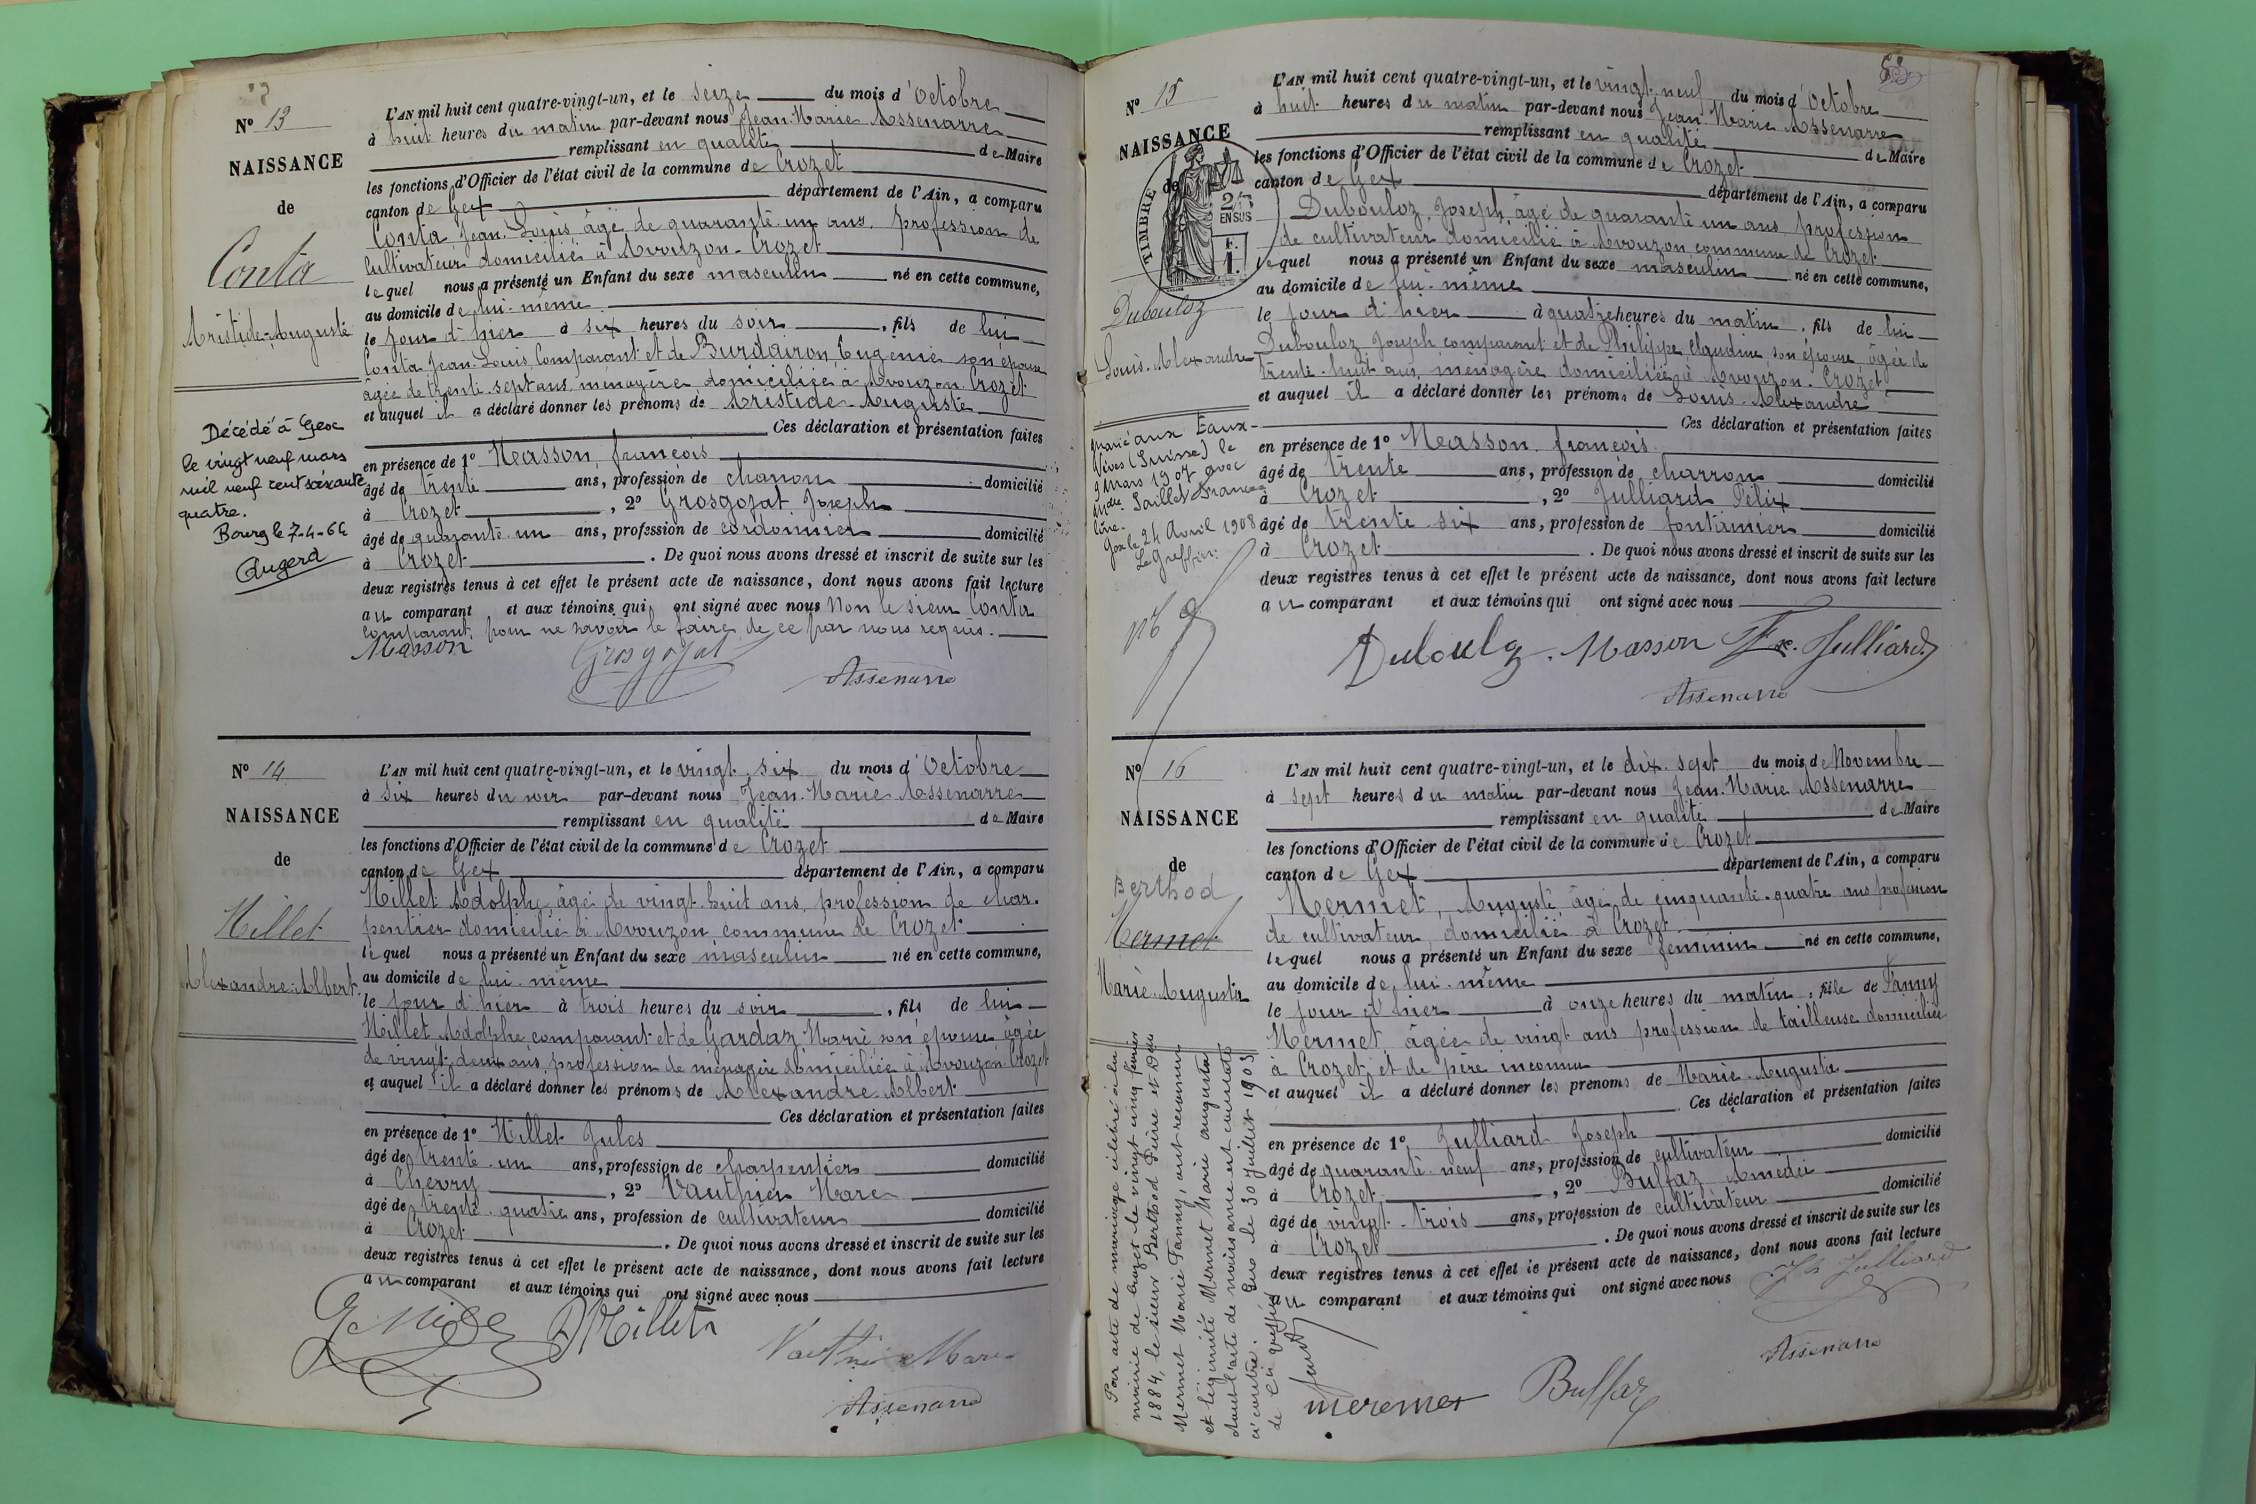 N° 13
NAISSANCE
de
Conta
Aristide-Auguste
Décédé à Gex
le vingt neuf mars
mil neuf cent soixante
quatre.
Bourg le 7-4-64
L'AN mil huit cent quatre-vingt-un, et le seize du mois d'Octobre
à huit heures du matin par-devant nous Jean-Marie Assenarre
remplissant en qualité de Maire
les fonctions d'Officier de l'état civil de la commune de Crozet
canton de Gex département de l'Ain, a comparu
Conta, Jean-Louis âgé de quarante un ans, profession de
cultivateur domicilié à Avouzon-Crozet
lequel nous a présenté un Enfant du sexe masculin né en cette commune,
au domicile de lui-même
le jour d'hier à six heures du soir, fils de lui
Conta Jean Louis Comparant et de Burdairon Eugénie son épouse
âgée de trente sept ans, ménagère domiciliée à Avouzon-Crozet
et auquel il a déclaré donner les prénoms de Aristide-Auguste
Ces déclaration et présentation faites
en présence de 1° Masson, françois
âgé de trente ans, profession de charron domicilié
à Crozet, 2° Grosgojat Joseph
âgé de quarante un ans, profession de cordonnier domicilié
à Crozet. De quoi nous avons dressé et inscrit de suite sur les
deux registres tenus à cet effet le présent acte de naissance, dont nous avons fait lecture
au comparant et aux témoins qui ont signé avec nous Non le sieur Conta
comparant, pour ne savoir le faire de ce par nous requis.
Masson Grosgojat
Assenarre
N° 14
NAISSANCE
de
Millet
Alexandre-Albert
L'AN mil huit cent quatre-vingt-un, et le vingt-six du mois d'Octobre
à six heures du soir par-devant nous Jean-Marie Assenarre
remplissant en qualité de Maire
les fonctions d'Officier de l'état civil de la commune de Crozet
canton de Gex département de l'Ain, a comparu
Millet Adolphe âgé de vingt-huit ans, profession de char-
pentier domicilié à Avouzon, commune de Crozet
lequel nous a présenté un Enfant du sexe masculin né en cette commune,
au domicile de lui-même
le jour d'hier à trois heures du soir, fils de lui
Millet Adolphe, comparant et de Gardaz Marie son épouse âgée
de vingt-deux ans, profession de ménagère domiciliée à Avouzon Crozet
et auquel il a déclaré donner les prénoms de Alexandre-Albert
Ces déclaration et présentation faites
en présence de 1° Millet Jules
âgé de trente-un ans, profession de charpentier domicilié
à Chevry, 2° Vauthier Marc
âgé de trente-quatre ans, profession de cultivateur domicilié
à Crozet. De quoi nous avons dressé et inscrit de suite sur les
deux registres tenus à cet effet le présent acte de naissance, dont nous avons fait lecture
au comparant et aux témoins qui ont signé avec nous
Millet
Vauthier Marc
Assenarre
N° 15
NAISSANCE
de
TIMBRE
2/10
EN SUS
Dubouloz
Louis-Alexandre
Marié aux Eaux-
Vives (Suisse) le
9 Mars 1907 avec
Saillet France
line.
Gex le 24 Avril 1908
Le Greffier:
L'AN mil huit cent quatre-vingt-un, et le vingt-neuf du mois d'Octobre
à huit heures du matin par-devant nous Jean-Marie Assenarre
remplissant en qualité de Maire
les fonctions d'Officier de l'état civil de la commune de Crozet
canton de Gex département de l'Ain, a comparu
Dubouloz, Joseph, âgé de quarante un ans, profession
de cultivateur domicilié à Avouzon commune de Crozet
lequel nous a présenté un Enfant du sexe masculin né en cette commune,
au domicile de lui-même
le jour d'hier à quatre heures du matin, fils de lui
Dubouloz Joseph comparant et de Philippe Claudine, son épouse âgée de
trente-huit ans, ménagère domiciliée à Avouzon-Crozet
et auquel il a déclaré donner les prénoms de Louis-Alexandre
Ces déclaration et présentation faites
en présence de 1° Masson, françois
âgé de trente ans, profession de charron domicilié
à Crozet, 2° Julliard Félix
âgé de trente-six ans, profession de fontainier domicilié
à Crozet. De quoi nous avons dressé et inscrit de suite sur les
deux registres tenus à cet effet le présent acte de naissance, dont nous avons fait lecture
au comparant et aux témoins qui ont signé avec nous
Dubouloz. Masson Fx. Julliard
Assenarre
N° 16
NAISSANCE
de
Berthod
Mermet
Marie-Augusta
Par acte de mariage célébré à la
mairie de Crozet le vingt cinq février
1884, le sieur Berthod Pierre et Dlle
Mermet Marie Fanny, ont reconnu
et légitimé Mermet Marie Augusta
dont l'acte de naissance est constaté
ci contre. Gex le 30 juillet 1903
L'AN mil huit cent quatre-vingt-un, et le dix-sept du mois de Novembre
à sept heures du matin par-devant nous Jean-Marie Assenarre
remplissant en qualité de Maire
les fonctions d'Officier de l'état civil de la commune de Crozet
canton de Gex département de l'Ain, a comparu
Mermet, Auguste âgé de cinquante-quatre ans profession
de cultivateur, domicilié à Crozet
lequel nous a présenté un Enfant du sexe féminin né en cette commune,
au domicile de lui-même
le jour d'hier à onze heures du matin, fille de Fanny
Mermet, âgée de vingt ans profession de tailleuse domiciliée
à Crozet, et de père inconnu
et auquel il a déclaré donner les prénoms de Marie-Augusta
Ces déclaration et présentation faites
en présence de 1° Julliard Joseph
âgé de quarante-neuf ans, profession de cultivateur domicilié
à Crozet, 2° Buffaz Amédée
âgé de vingt-trois ans, profession de cultivateur domicilié
à Crozet. De quoi nous avons dressé et inscrit de suite sur les
deux registres tenus à cet effet le présent acte de naissance, dont nous avons fait lecture
au comparant et aux témoins qui ont signé avec nous
Jh Julliard
Assenarre
Buffaz